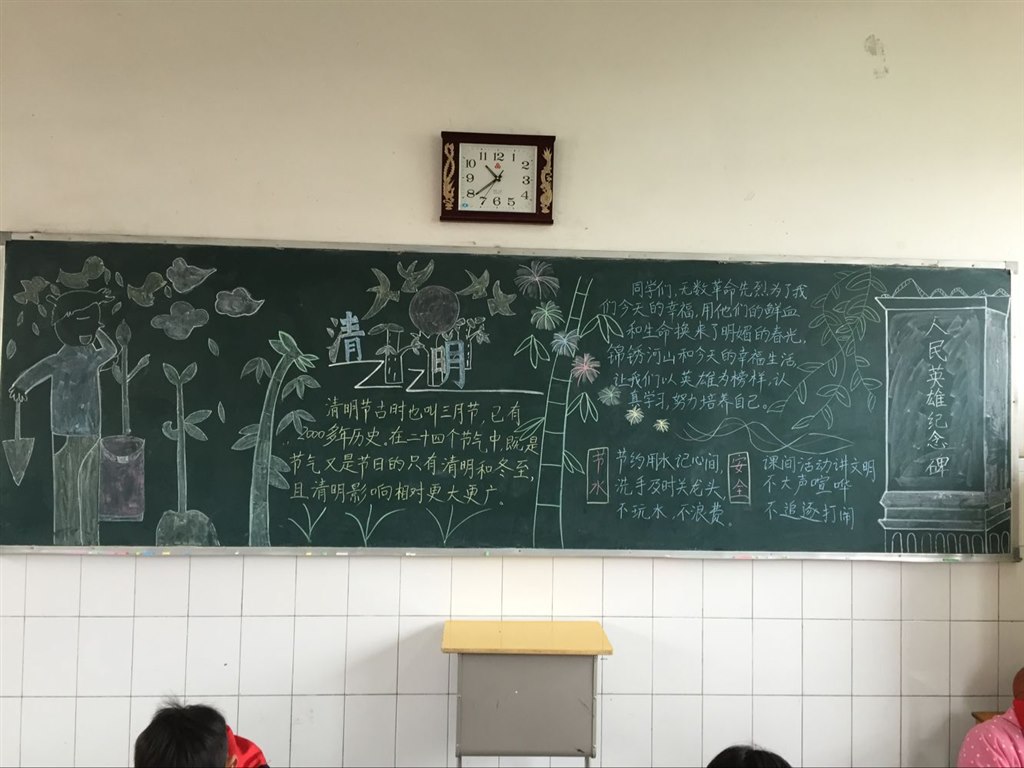 清明
清明节古时也叫三月节,已有
2000多年历史。在二十四个节气中,既是
节气又是节日的只有清明和冬至,
且清明影响相对更大更广。
同学们,无数革命先烈为了我
们今天的幸福,用他们的鲜血
和生命换来了明媚的春光,
锦锈河山和今天的幸福生活,
让我们以英雄为榜样,认
真学习,努力培养自己。
节水
节约用水记心间,
洗手及时关龙头,
不玩水,不浪费。
安全
课间活动讲文明
不大声喧哗
不追逐打闹
人民英雄纪念碑
11 12 1
10 2
9 3
8 4
7 6 5